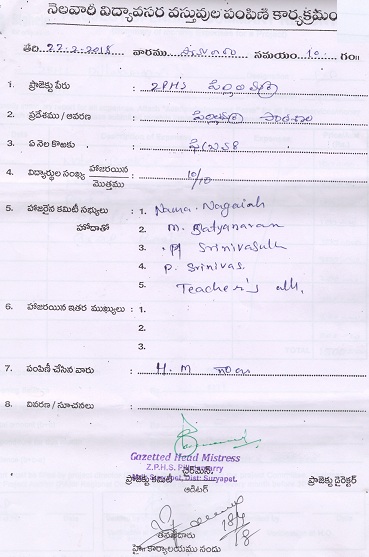 నెలవారీ విద్యావసర వస్తువుల పంపిణి కార్యక్రమం
తేది 22-2-2018 వారము సమయం 10 గం॥
1. ప్రాజెక్టు పేరు : ZPHS
2. ప్రదేశము / ఆవరణ :
3. ఏ నెల కొఱకు :
4. విద్యార్థుల సంఖ్య హాజరయిన / మొత్తము : 10/10
5. హాజరైన కమిటీ సభ్యులు హోదాతో : 1. Nama. Nagaiah
2. M. Satyanaran
3. P Srinivasulu
4. P. Srinivas.
5. Teacher's all.
6. హాజరయిన ఇతర ముఖ్యులు : 1.
2.
3.
7. పంపిణీ చేసిన వారు : H.M
8. వివరణ / సూచనలు :
Gazetted Head Mistress
Z.P.H.S.
Dist: Suryapet.
ప్రాజెక్టు కమిటీ చైర్మన్ ప్రాజెక్టు డైరెక్టర్
ఆడిటర్
18/4/18
హై॥ కార్యాలయము నందు